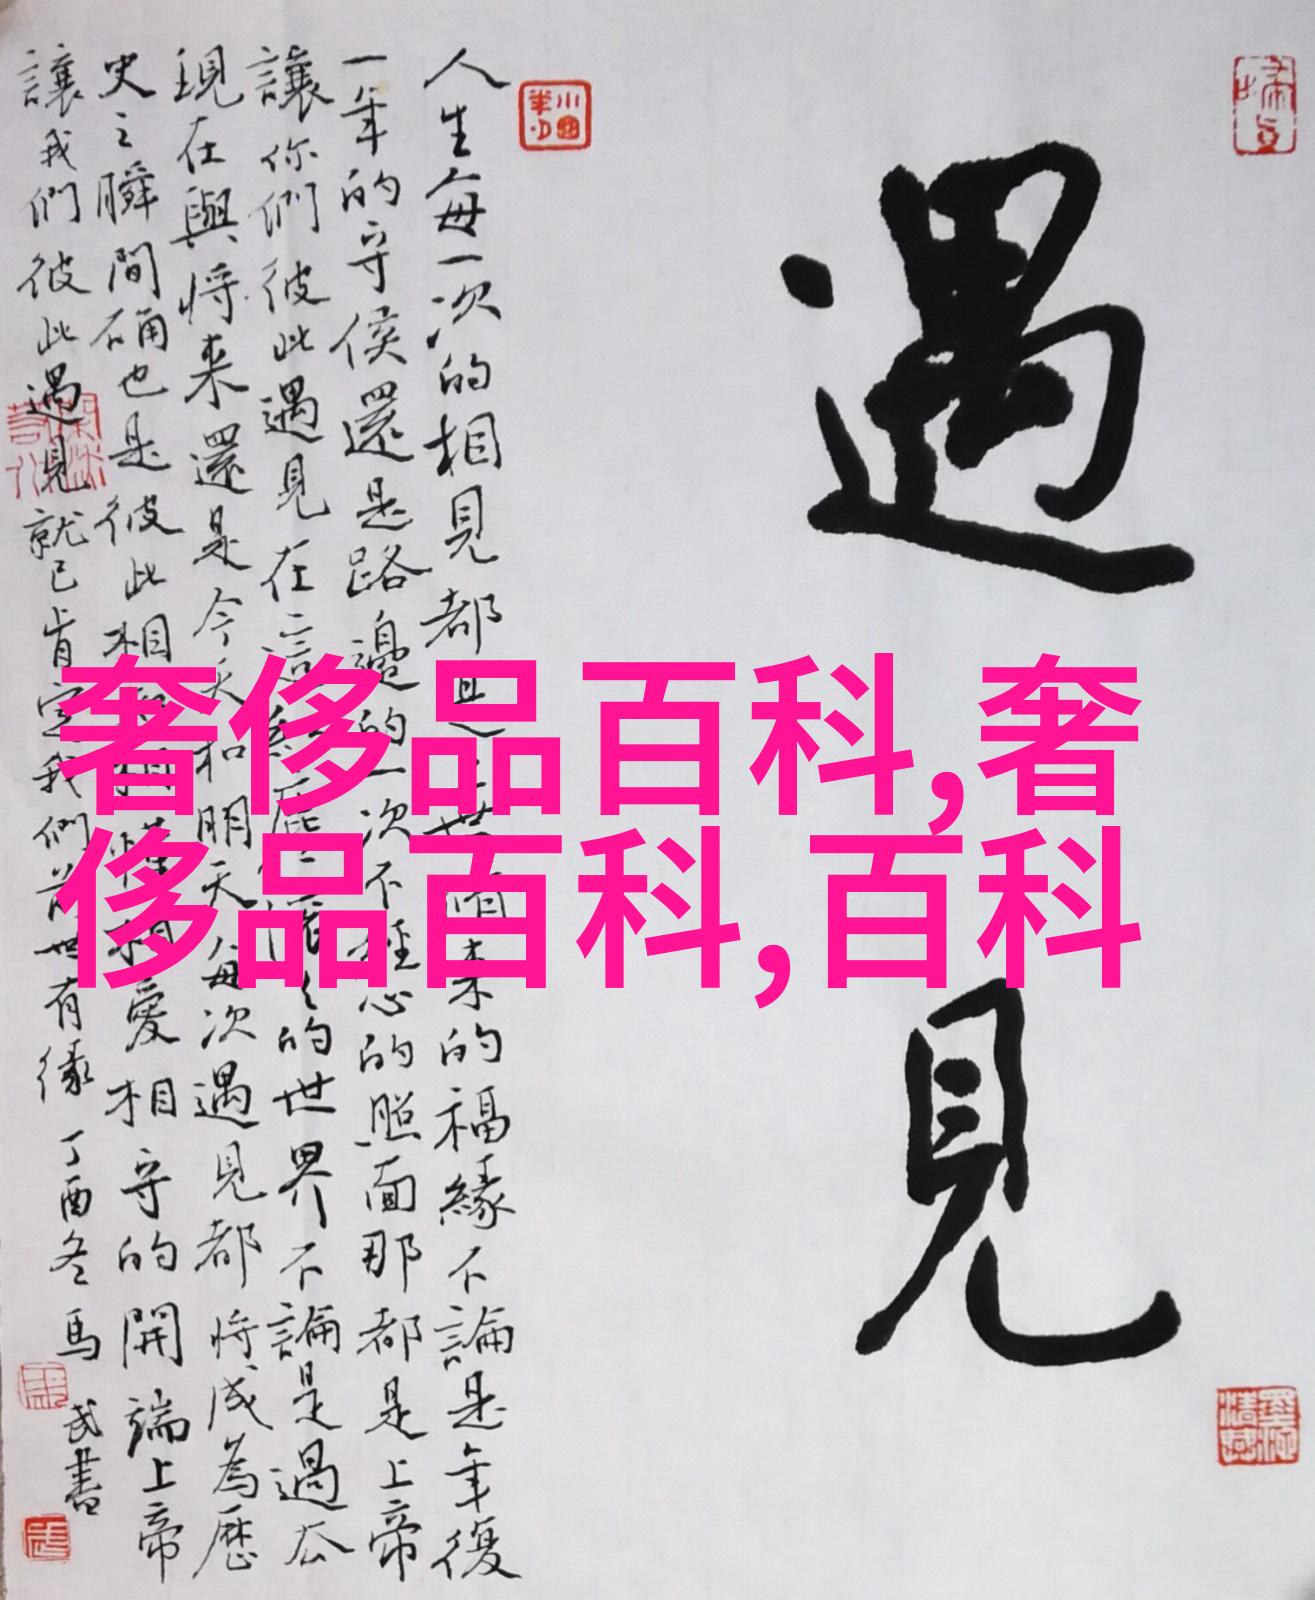 遇見
人生每一次的相見都是上世帶来的福緣不論是年復
一年的守侯還是路邊的一次不經心的照面那都是上帝
讓你們彼此遇見在這無茫的世界不論是過去
現在與将来還是今天和明天每次遇見都将成為歷
史之瞬間確也是彼此相相愛相守的開端上帝
讓我們彼此遇見就已肯定我們前世有缘 丁酉冬馬武書
奢侈品百科,奢
侈品百科,百科